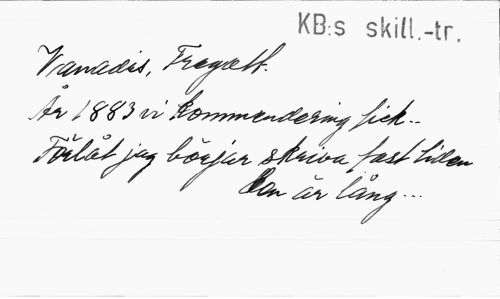 KB:s skill.-tr.
Vanadis, Fregatt.
År 1883 vi kommendering fick..
Förlåt jag börjar skriva fast tiden
ean är lång...